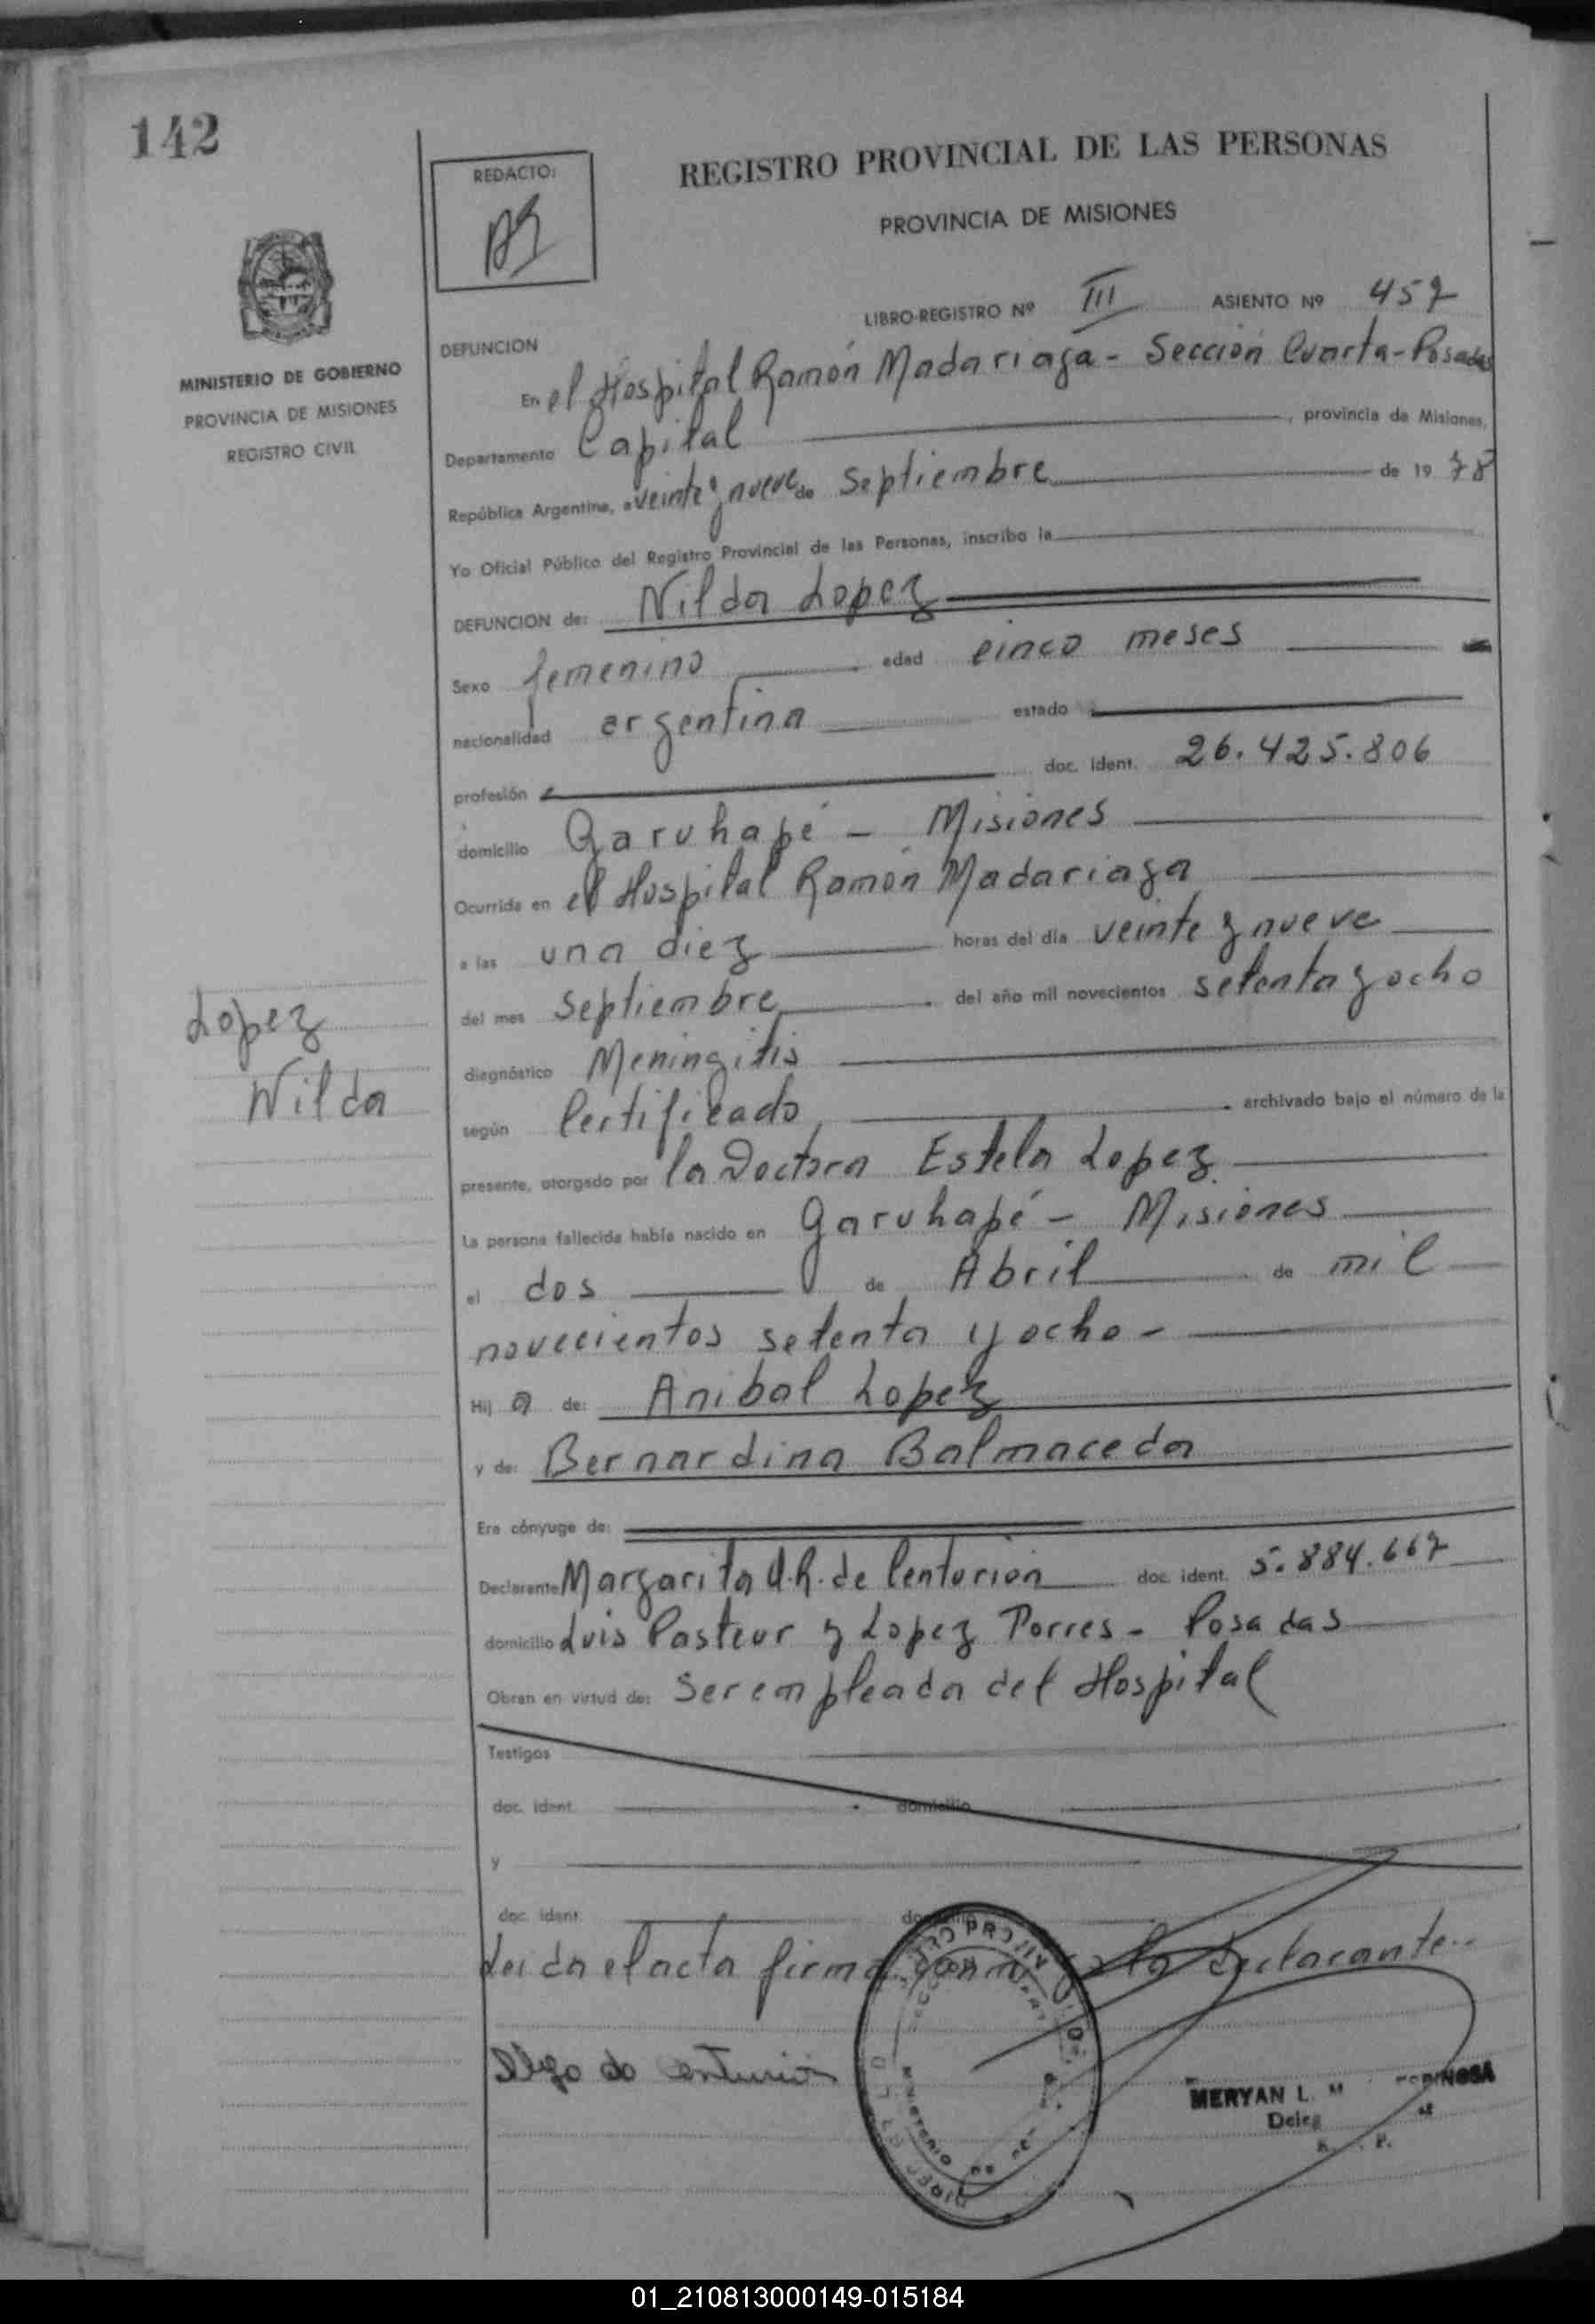 142
REDACTO:
REGISTRO PROVINCIAL DE LAS PERSONAS
PROVINCIA DE MISIONES
LIBRO-REGISTRO Nº III ASIENTO Nº 457
MINISTERIO DE GOBIERNO
PROVINCIA DE MISIONES
REGISTRO CIVIL
DEFUNCION
En el Hospital Ramón Madariaga - Sección Cuarta - Posadas
Departamento Capital, provincia de Misiones,
República Argentina, a veinte y nueve de Septiembre de 1978
Yo Oficial Público del Registro Provincial de las Personas, inscribo la
DEFUNCION de: Nilda Lopez
Sexo femenino edad cinco meses
nacionalidad argentina estado
profesión doc. ident. 26.425.806
domicilio Garuhapé - Misiones
Ocurrida en el Hospital Ramón Madariaga
a las una diez horas del día veinte y nueve
del mes Septiembre del año mil novecientos setenta y ocho
Lopez
Nilda
diagnóstico Meningitis
según Certificado, archivado bajo el número de la
presente, otorgado por la Doctora Estela Lopez.
La persona fallecida había nacido en Garuhapé - Misiones
el dos de Abril de mil
novecientos setenta y ocho -
Hij a de: Anibal Lopez
y de: Bernardina Balmaceda
Era cónyuge de:
Declarante Margarita de Centurion doc. ident. 5.884.667
domicilio Luis Pasteur y Lopez Torres - Posadas
Obran en virtud de: Ser empleada del Hospital
Testigos
doc. ident. domicilio
y
doc. ident. domicilio
Leida el acta firma conmigo la declarante..
de Centurion
MERYAN L. M
01_210813000149-015184